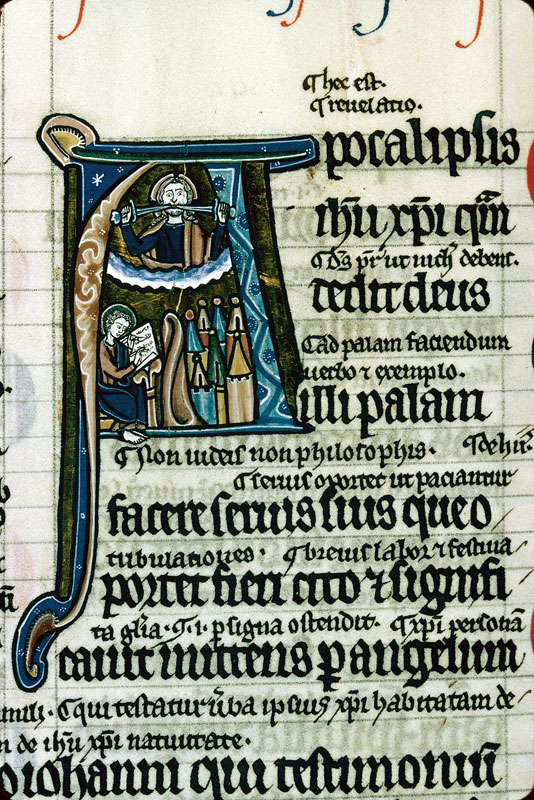 ¶ hec est.
¶ reuelatio.
Apocalipsis
ihu xpi qm
dedit deus
¶ ad palam faciendum
uerbo ⁊ exemplo.
illi palam
¶ Non iudeis non philosophis.
¶ seruis oportet ut paciantur
facere seruis suis que o
tribulationes. ¶ breuis labor ⁊ festina
portet fieri cito ⁊ signifi
ta glia. ¶ .i. p signa ostendit. ¶ xpi personā
cauit mittens p angelum
¶ qui testatur uba ipsius xpi habitatam de
de ihu xpi natiuitate.
o iohanni qui testimoniū